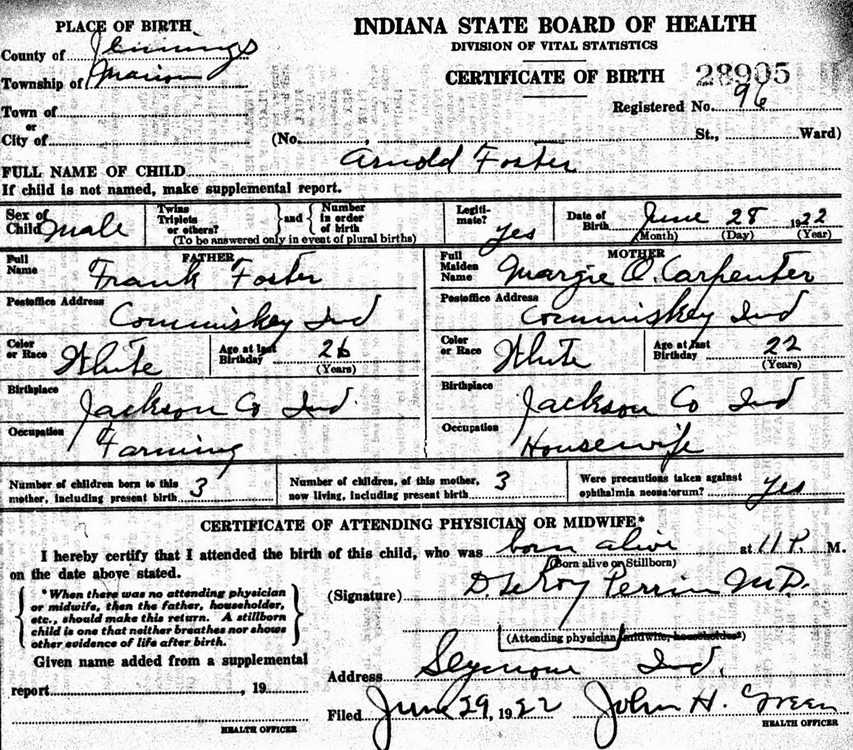 PLACE OF BIRTH
INDIANA STATE BOARD OF HEALTH
DIVISION OF VITAL STATISTICS
County of Jennings
Township of Marion
CERTIFICATE OF BIRTH 28905
Registered No. 96
Town of
or
City of (No. , St., Ward)
FULL NAME OF CHILD Arnold Foster
If child is not named, make supplemental report.
Sex of Child Male
Twins Triplets or others? and Number in order of birth
(To be answered only in event of plural births)
Legiti-mate? Yes
Date of Birth June 28 1922
(Month) (Day) (Year)
FATHER
Full Name Frank Foster
MOTHER
Full Maiden Name Margie O. Carpenter
Postoffice Address Commiskey Ind
Postoffice Address Commiskey Ind
Color or Race White Age at last Birthday 26 (Years)
Color or Race White Age at last Birthday 22 (Years)
Birthplace Jackson Co Ind.
Birthplace Jackson Co Ind
Occupation Farming
Occupation Housewife
Number of children born to this mother, including present birth 3
Number of children, of this mother, now living, including present birth 3
Were precautions taken against ophthalmia neonatorum? Yes
CERTIFICATE OF ATTENDING PHYSICIAN OR MIDWIFE*
I hereby certify that I attended the birth of this child, who was born alive at 11 P. M.
(Born alive or Stillborn)
on the date above stated.
* When there was no attending physician
or midwife, then the father, householder,
etc., should make this return. A stillborn
child is one that neither breathes nor shows
other evidence of life after birth.
(Signature) D. LeRoy Perrin M.D.
(Attending physician, midwife, householder*)
Given name added from a supplemental
report , 19
Address Seymour Ind.
Filed June 29, 1922 John H. Green
HEALTH OFFICER
HEALTH OFFICER